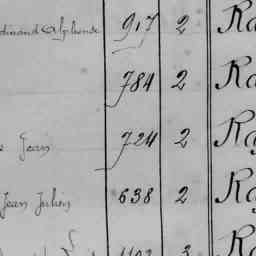 dinand Alphonse 917 2 Ra
784 2 Ra
Jean 724 2 Ra
Jean Julien 638 2 Ra
3 Ra